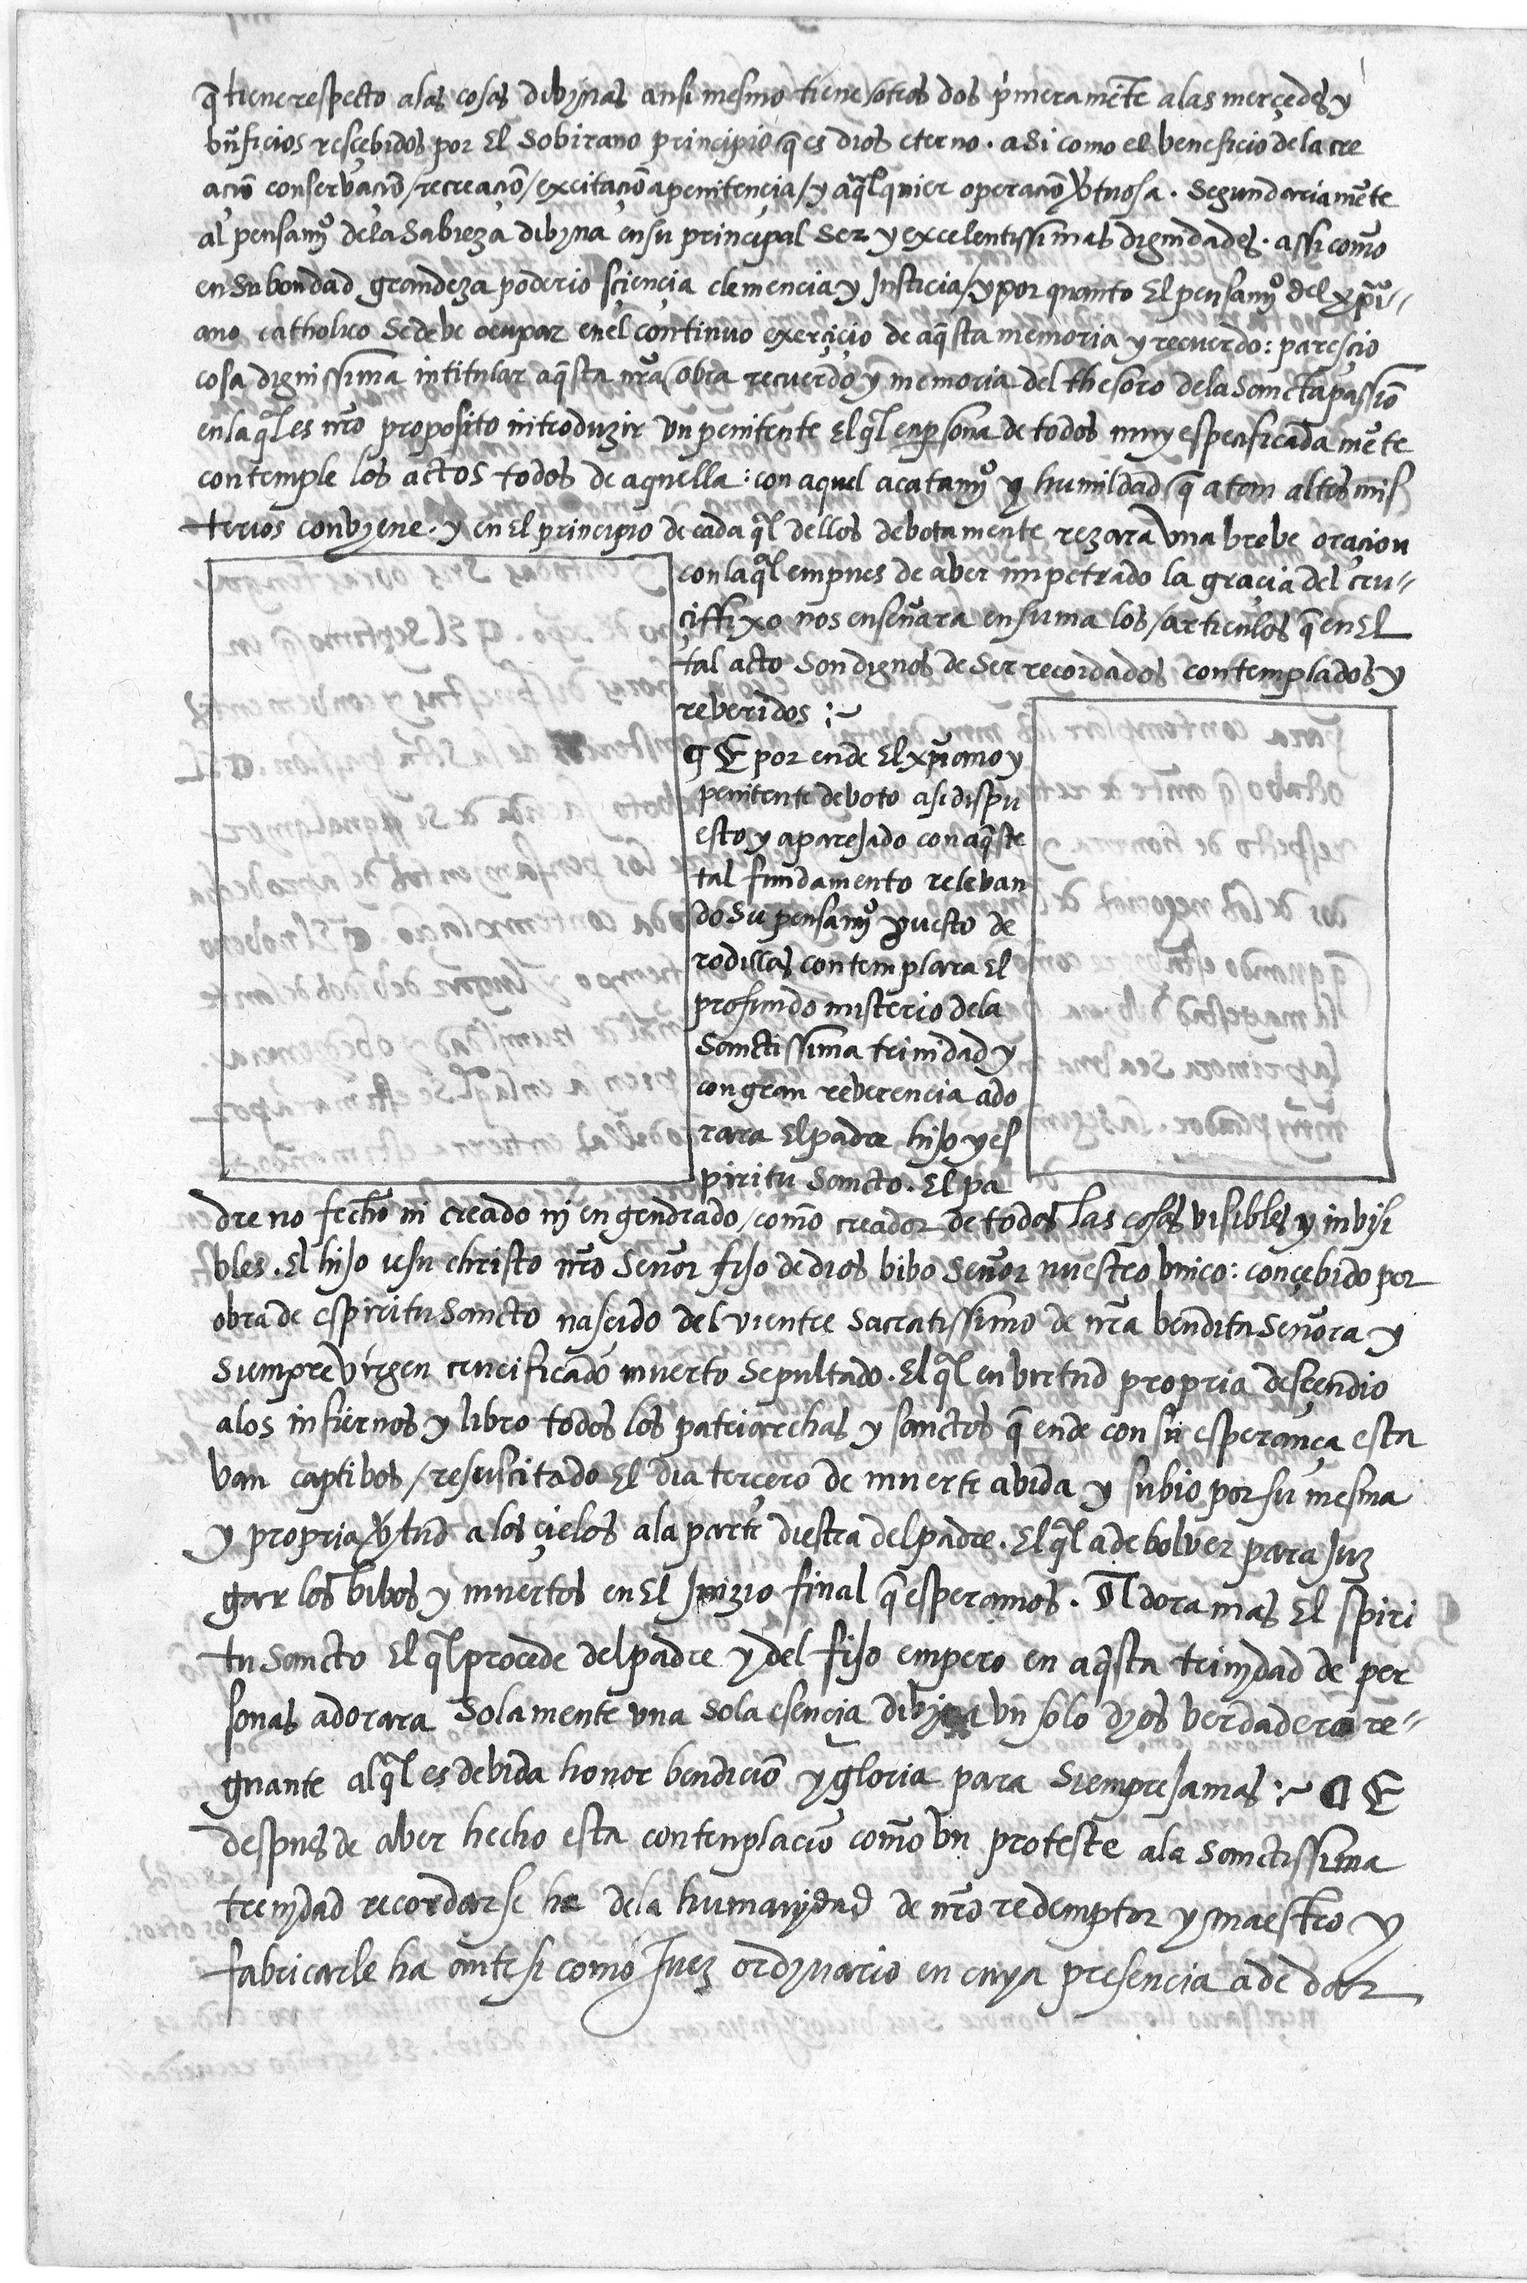 q̃ tiene respecto a las cosas dibynas ansi mesmo tiene / otros dos p̃meramẽte a las merçedes y
bñficios resçebidos por El Sobirano principio q̃ es dios eterno . asi como el beneficio de la cre
aciõ conservaciõ / recreaciõ / excitaciõ a penitençia / y a q̃lquier operaciõ v̓tuosa . Segundariamẽte
al pensamº de la Sabieza dibyna en su prinçipal Ser y excelentissimas dignidades . assi como
en su bondad grandeza poderio sçiençia clemencia y Justicia / y por quanto El pensamº del xp̃i-
ano catholico Se debe ocupar en el continuo exerçiçio de aq̃sta memoria y recuerdo : paresçio
cosa dignissima intitular aq̃sta nr̃a / obra recuerdo y memoria del thesoro de la Sancta passiõ
en la q̃l es nr̃o proposito introduzir vn penitente El q̃l en p̱sona de todos muy espeçificadamẽte
contemple los actos todos de aquella : con aquel acatamº y humildad q̃ a tan altos mis
terios convyene . y en El principio de cada q̃l dellos debotamente rezara vna brebe oracion
con la q̃l empues de aber impetrado la graçia del cru-
çiffixo nos enseñara en suma los / articulos q̃ en El
tal acto Son dignos de Ser recordados contemplados y
reberidos :~
¶ E por ende El xp̃iano y
penitente deboto asi dispu
esto y aparejado con aq̃ste
tal fundamento relevan
do Su pensamº puesto de
rodillas contemplara El
profundo misterio de la
Sanctissima trinidad y
con gran reberencia ado
rara El padre hijo y es
piritu Sancto . El pa
dre no fecho ni creado nj engendrado / como creador de todos las cosas visibles y invisi
bles . El hijo iesu christo nr̃o Señor fijo de dios bibo Señor nuestro vnico : conçebido por
obra de espiritu Sancto nasçido del vientre Sacratissimo de nr̃a bendita Señora y
Siempre virgen crucificado muerto Sepultado . El q̃l en virtud propria desçendio
a los infiernos y libro todos los patriarchas y sanctos q̃ ende con su esperança esta
van captibos / resuscitado El dia terçero de muerte abida y subio por su mesma
y propria v̓tud a los çielos a la parte diestra del padre . El q̃l a de bolver para Juz
gar los bibos y muertos en El Juizio final q̃ esperamos . Adora mas El spiri
tu Sancto El q̃l procede del padre y del fijo empero en aq̃sta trinydad de per
sonas adorara Solamente vna Sola esençia dibyna vn solo dyos verdadero re-
gnante al q̃l es debida honor bendiciõ y gloria para Siempre Jamas :~ ¶ E
despues de aber hecho esta contenplaciõ como vn proteste a la Sanctissima
trenydad recordarse ha de la humanydad de nr̃o redemptor y maestro y
fabricarle ha ante si como Juez ordynario en cuya presencia a de dar